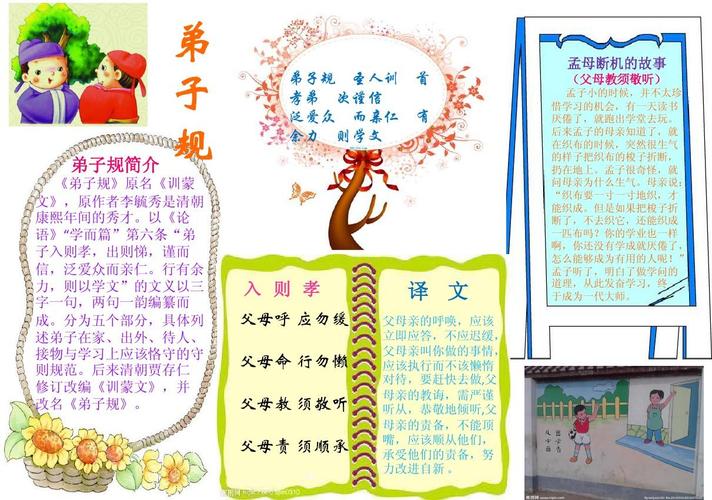 弟
子
规
弟子规简介
《弟子规》原名《训蒙
文》，原作者李毓秀是清朝
康熙年间的秀才。以《论
语》“学而篇”第六条“弟
子入则孝，出则悌，谨而
信，泛爱众而亲仁。行有余
力，则以学文”的文义以三
字一句，两句一韵编纂而
成。分为五个部分，具体列
述弟子在家、出外、待人、
接物与学习上应该恪守的守
则规范。后来清朝贾存仁
修订改编《训蒙文》，并
改名《弟子规》。
弟子规 圣人训 首
孝弟 次谨信
泛爱众 而亲仁 有
余力 则学文
孟母断机的故事
（父母教须敬听）
孟子小的时候，并不太珍
惜学习的机会，有一天读书
厌倦了，就跑出学堂去玩。
后来孟子的母亲知道了，就
在织布的时候，突然很生气
的样子把织布的梭子折断，
扔在地上。孟子很奇怪，就
问母亲为什么生气。母亲说：
“织布要一寸一地织，才
能织成。但是如果把梭子折
断了，不去织它，还能织成
一匹布吗？你的学业也一样
啊，你还没有学成就厌倦了，
怎么能够成为有用的人呢！”
孟子听了，明白了做学问的
道理，从此发奋学习，终
于成为一代大师。
入则孝
父母呼 应勿缓
父母命 行勿懒
父母教 须敬听
父母责 须顺承
译文
父母亲的呼唤，应该
立即应答，不应迟缓，
父母亲叫你做的事情，
应该执行而不该懒惰
对待，要赶快去做，父
母亲的教诲，需严谨
听从，恭敬地倾听，父
母亲的责备，不能顶
嘴，应该顺从他们，
承受他们的责备，努
力改进自新。